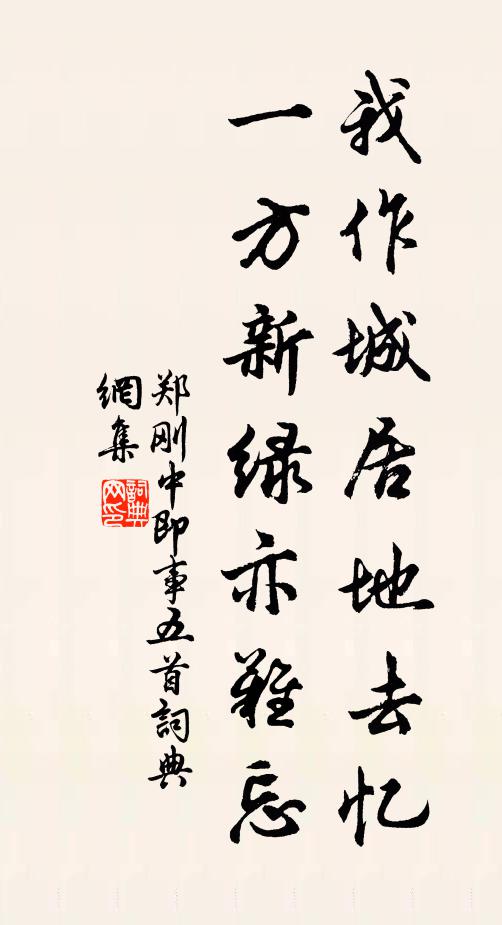 我作城居地去忆
一方新绿亦难忘
郑刚中即事五首詞典
網集
詞典网印